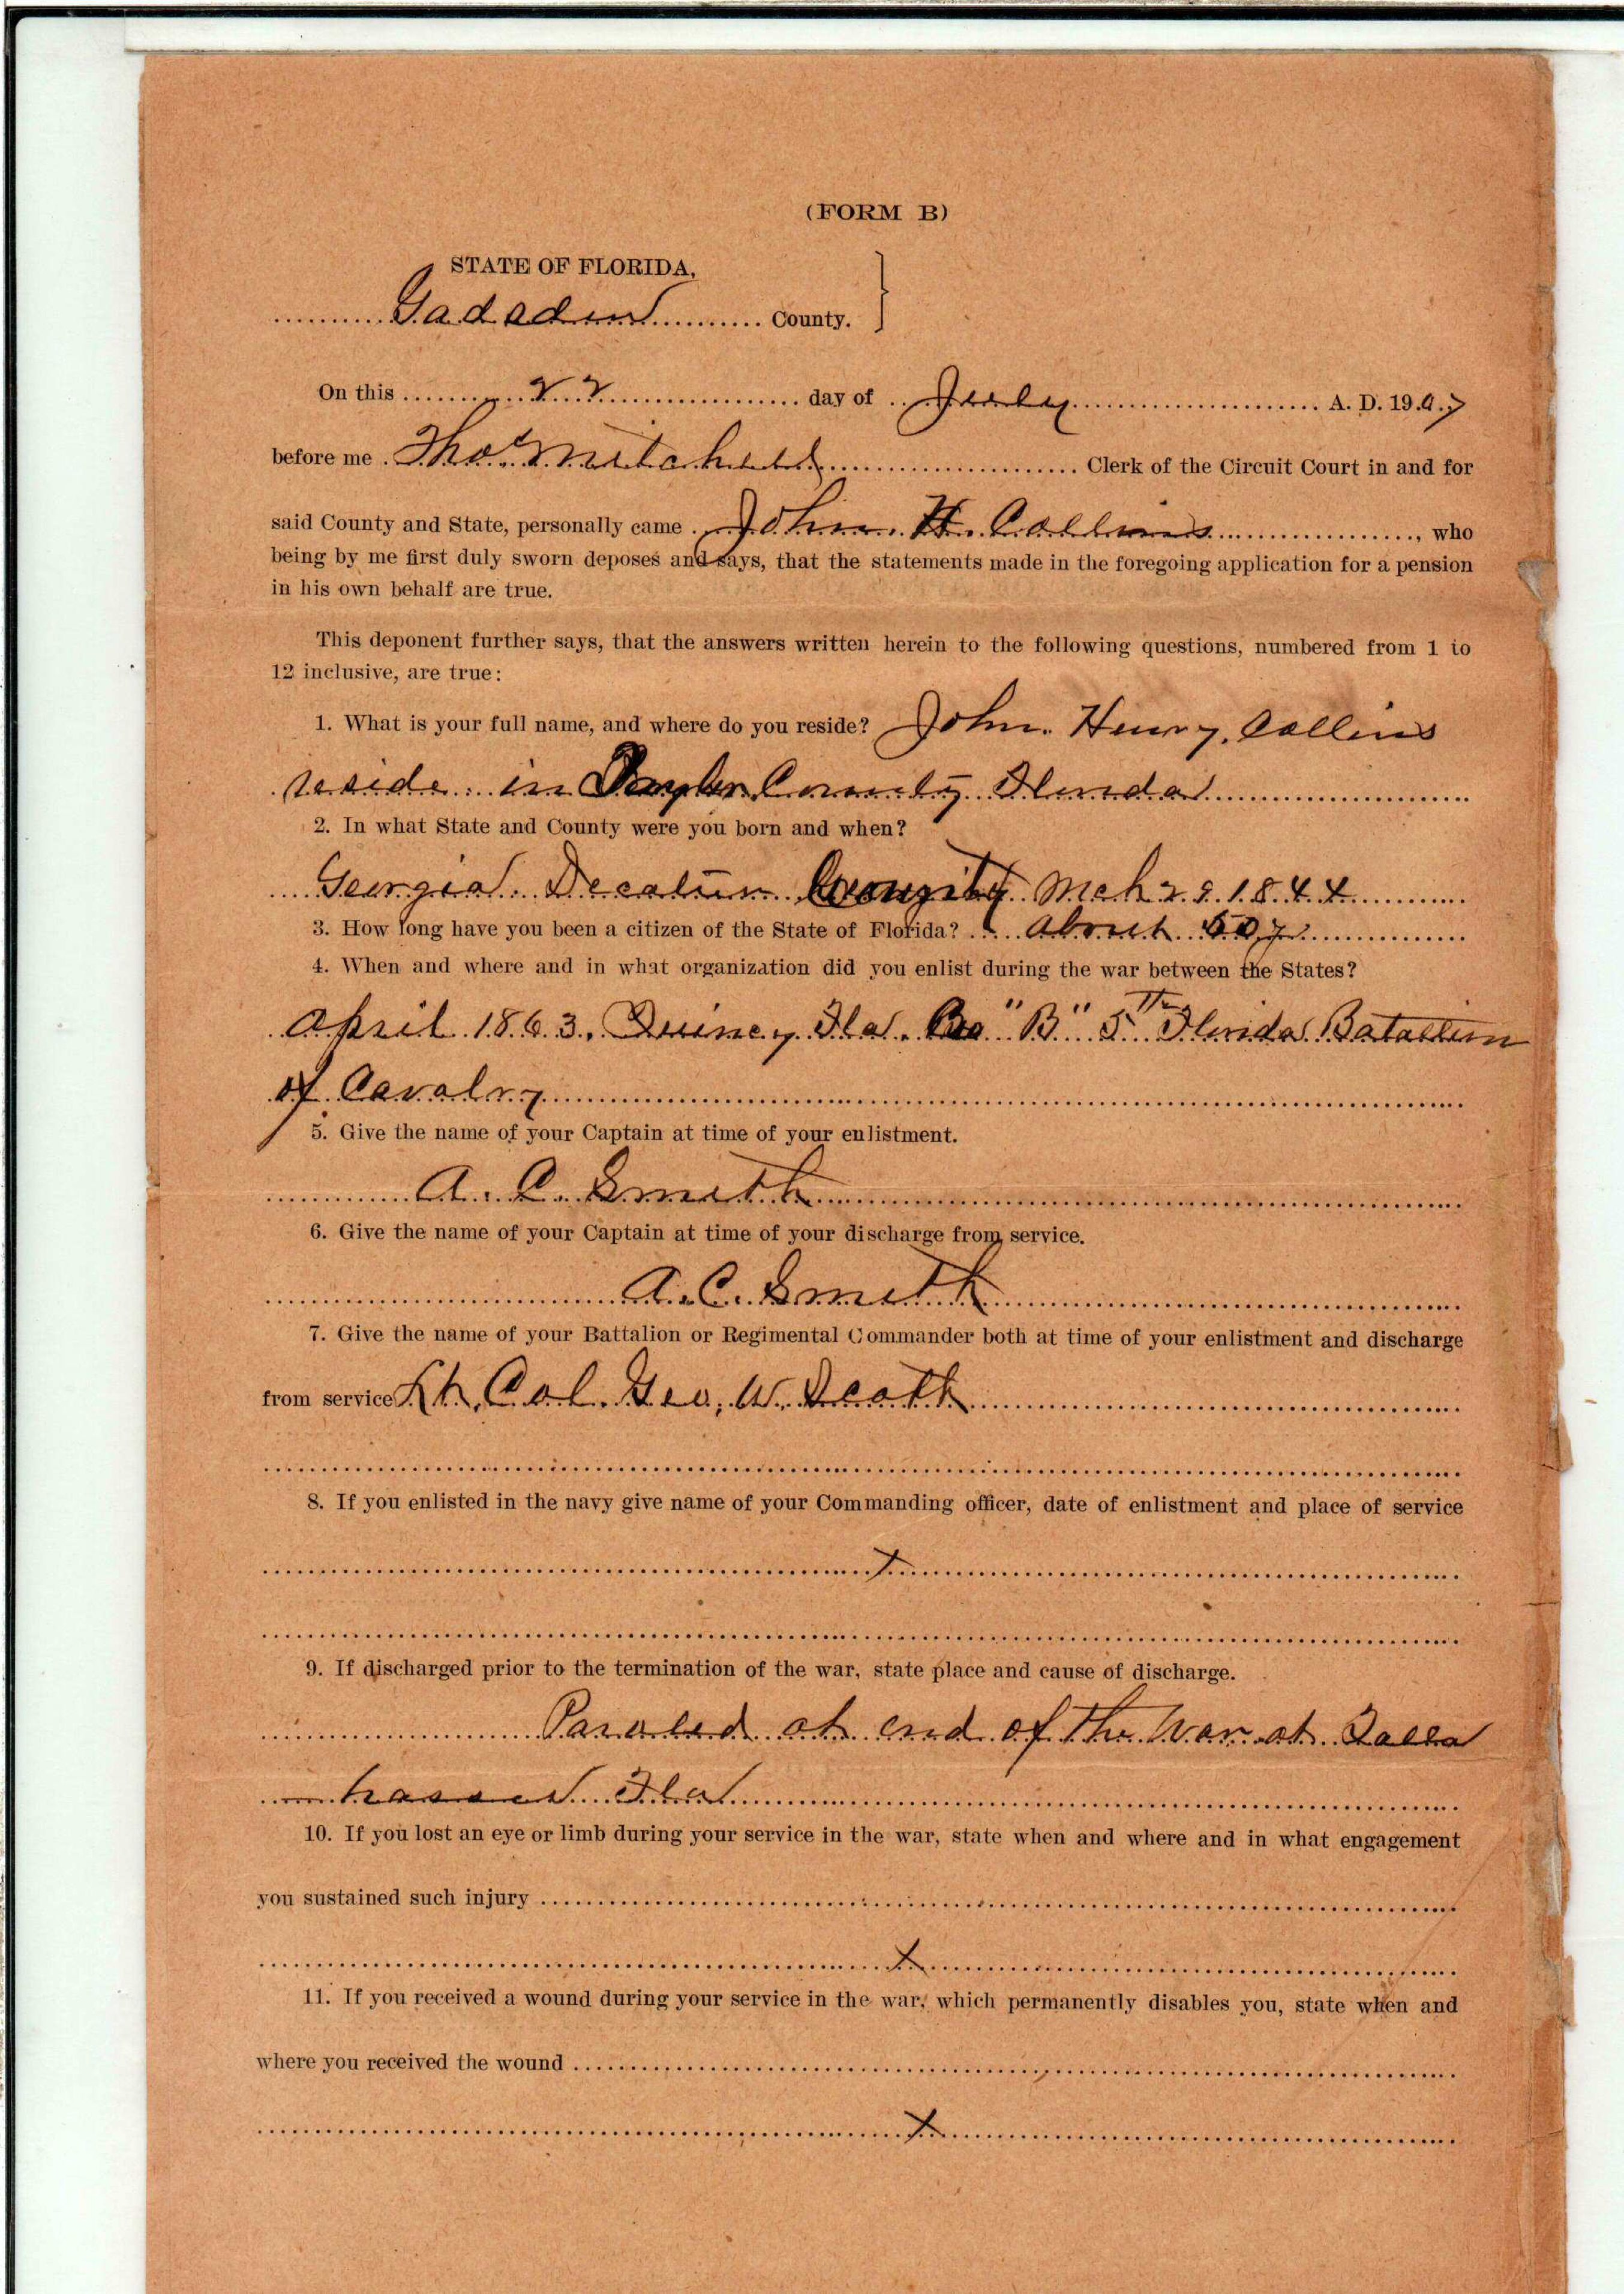 (FORM B)
STATE OF FLORIDA,
Gadsden County.
On this 22 day of July A. D. 1907
before me Thos Mitchell Clerk of the Circuit Court in and for
said County and State, personally came John H. Collins, who
being by me first duly sworn deposes and says, that the statements made in the foregoing application for a pension
in his own behalf are true.
This deponent further says, that the answers written herein to the following questions, numbered from 1 to
12 inclusive, are true:
1. What is your full name, and where do you reside? John Henry Collins
reside in Taylor County Florida
2. In what State and County were you born and when?
Georgia Decatur County Mch 29 1844
3. How long have you been a citizen of the State of Florida? About 50 y
4. When and where and in what organization did you enlist during the war between the States?
April 1863. Quincy Fla. Co "B" 5th Florida Batallion
of Cavalry
5. Give the name of your Captain at time of your enlistment.
A. C. Smith
6. Give the name of your Captain at time of your discharge from service.
A. C. Smith
7. Give the name of your Battalion or Regimental Commander both at time of your enlistment and discharge
from service Lt. Col. Geo. W. Scott
8. If you enlisted in the navy give name of your Commanding officer, date of enlistment and place of service
x
9. If discharged prior to the termination of the war, state place and cause of discharge.
Paroled at end of the War at Talla
hassee Fla
10. If you lost an eye or limb during your service in the war, state when and where and in what engagement
you sustained such injury
x
11. If you received a wound during your service in the war, which permanently disables you, state when and
where you received the wound
x